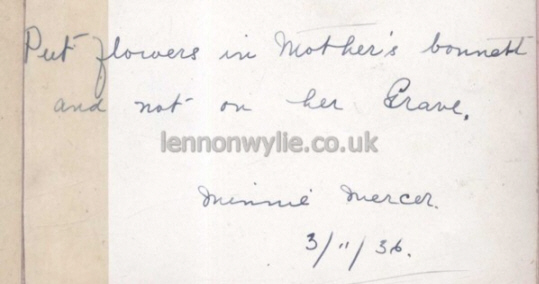 Put flowers in Mother's bonnett
and not on her Grave.
lennonwylie.co.uk
Minnie Mercer.
3/11/36.